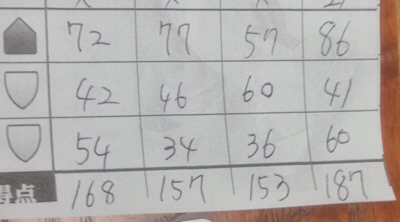 72 77 57 86
42 46 60 41
54 34 36 60
得点 168 157 153 187